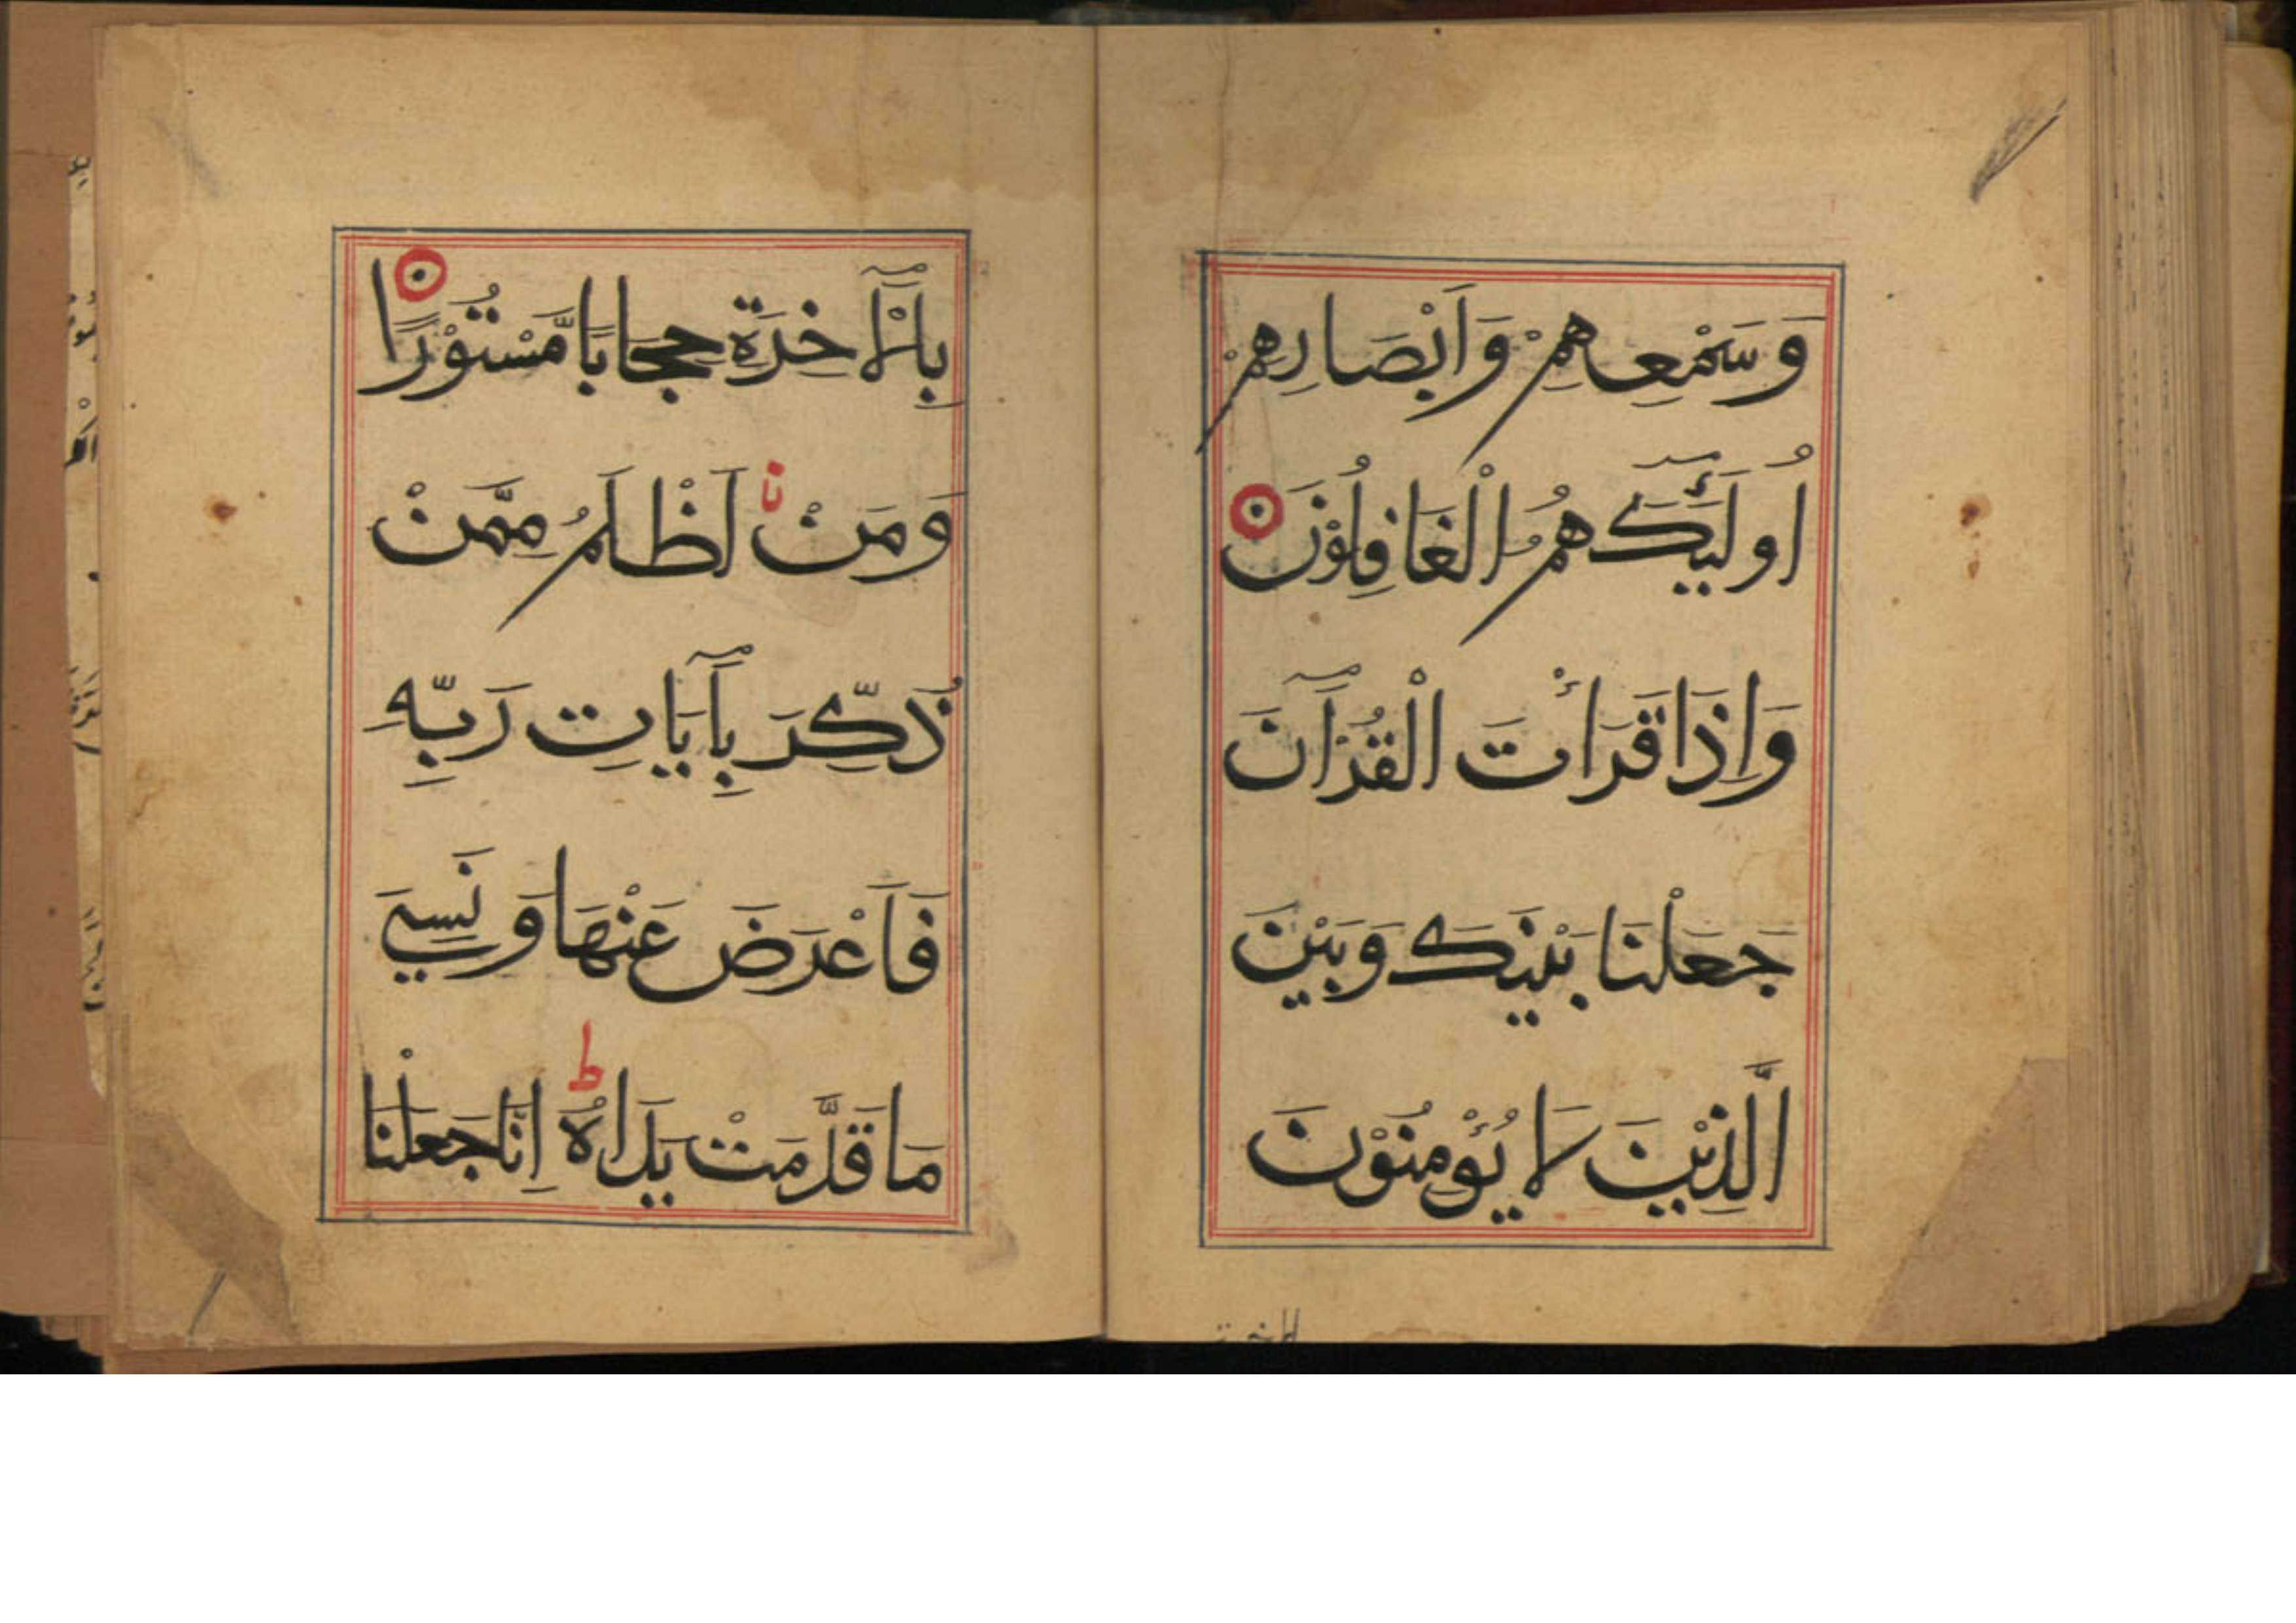 وَسَمْعِهِمْ وَاَبْصَارِهِمْ
اُولَٓئِكَ هُمُ الْغَافِلُوْنَ
وَاِذَا قَرَاْتَ الْقُرْاٰنَ
جَعَلْنَا بَيْنَكَ وَبَيْنَ
الَّذِيْنَ لَا يُؤْمِنُوْنَ
بِالْاٰخِرَةِ حِجَابًا مَّسْتُوْرًا
وَمَنْ اَظْلَمُ مِمَّنْ
ذُكِّرَ بِاٰيَاتِ رَبِّهِ
فَاَعْرَضَ عَنْهَا وَنَسِيَ
مَا قَدَّمَتْ يَدَاهُ ط اِنَّا جَعَلْنَا